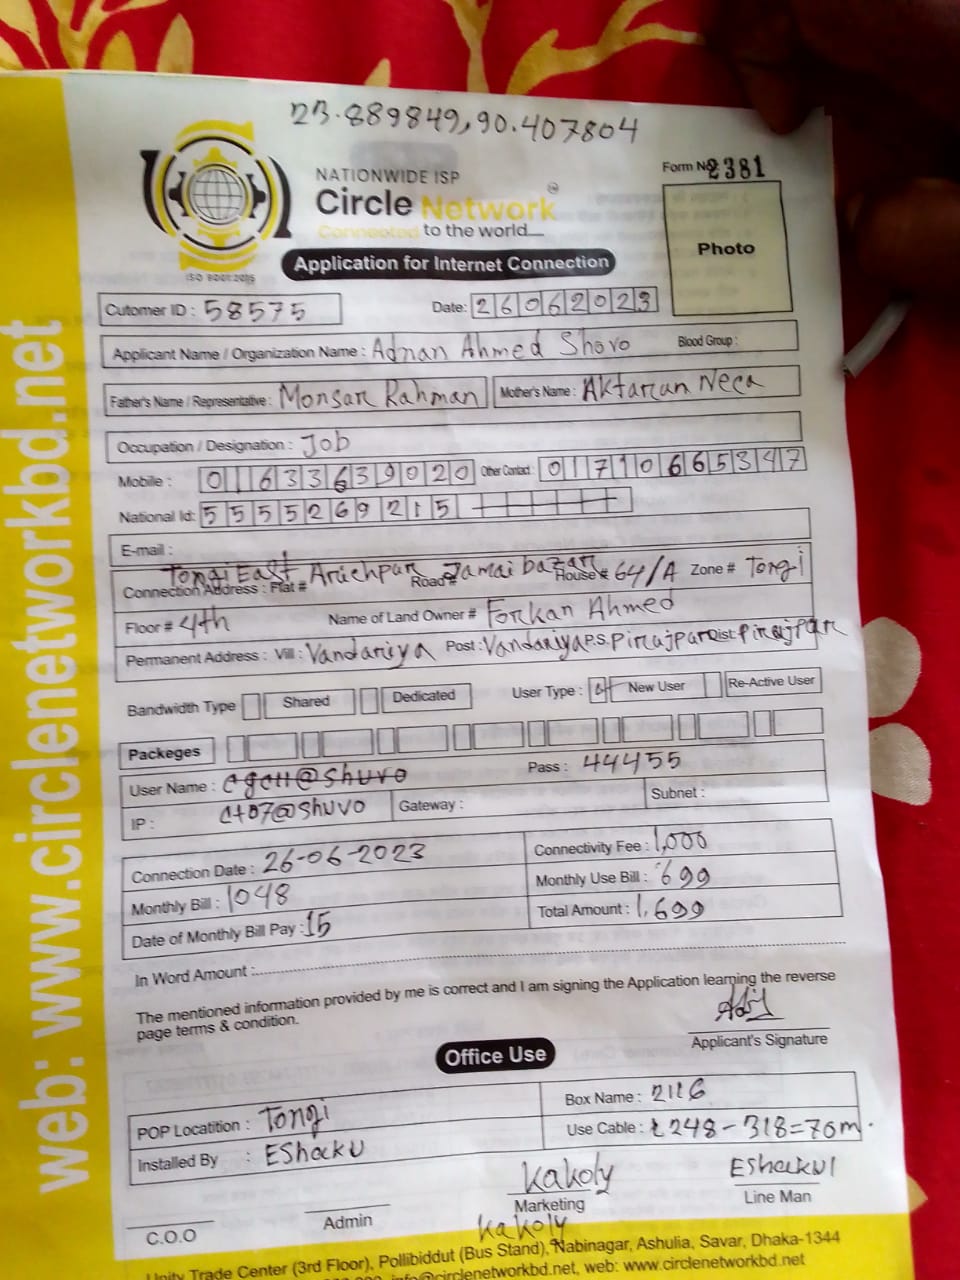 23.889849,90.407804
Form No 2381
NATIONWIDE ISP
Circle Network
Connected to the world
ISO 9001:2015
Photo
Application for Internet Connection
Cutomer ID : 58575 Date: 26062023
Applicant Name / Organization Name : Adnan Ahmed Shovo Blood Group :
Father's Name / Representative : Monsar Rahman Mother's Name : Aktarun Neca
Occupation / Designation : Job
Mobile : 01633639020 Other Contact : 01710665347
National Id: 5555269215
E-mail :
Tongi East Arichpur Jamai bazar
Connection Address : Flat # Road # House # 64/A Zone # Tongi
Floor # 4th Name of Land Owner # Forkan Ahmed
Permanent Address : Vill : Vandariya Post : Vandariya P.S. Pirajpur Dist: Pirajpur
Bandwidth Type Shared Dedicated User Type : New User Re-Active User
Packeges
User Name : cgc11@shuvo Pass : 44455
IP : ct07@shuvo Gateway : Subnet :
Connection Date : 26-06-2023 Connectivity Fee : 1,000
Monthly Bill : 1048 Monthly Use Bill : 699
Date of Monthly Bill Pay : 15 Total Amount : 1,699
In Word Amount :
The mentioned information provided by me is correct and I am signing the Application learning the reverse
page terms & condition.
Applicant's Signature
Office Use
POP Locatition : Tongi Box Name : 2116
Installed By : EShakU Use Cable : 248-318=70m.
kakoly EShakUl
C.O.O Admin Marketing Line Man
kakoly
Unity Trade Center (3rd Floor), Pollibiddut (Bus Stand), Nabinagar, Ashulia, Savar, Dhaka-1344
info@circlenetworkbd.net, web: www.circlenetworkbd.net
web: www.circlenetworkbd.net